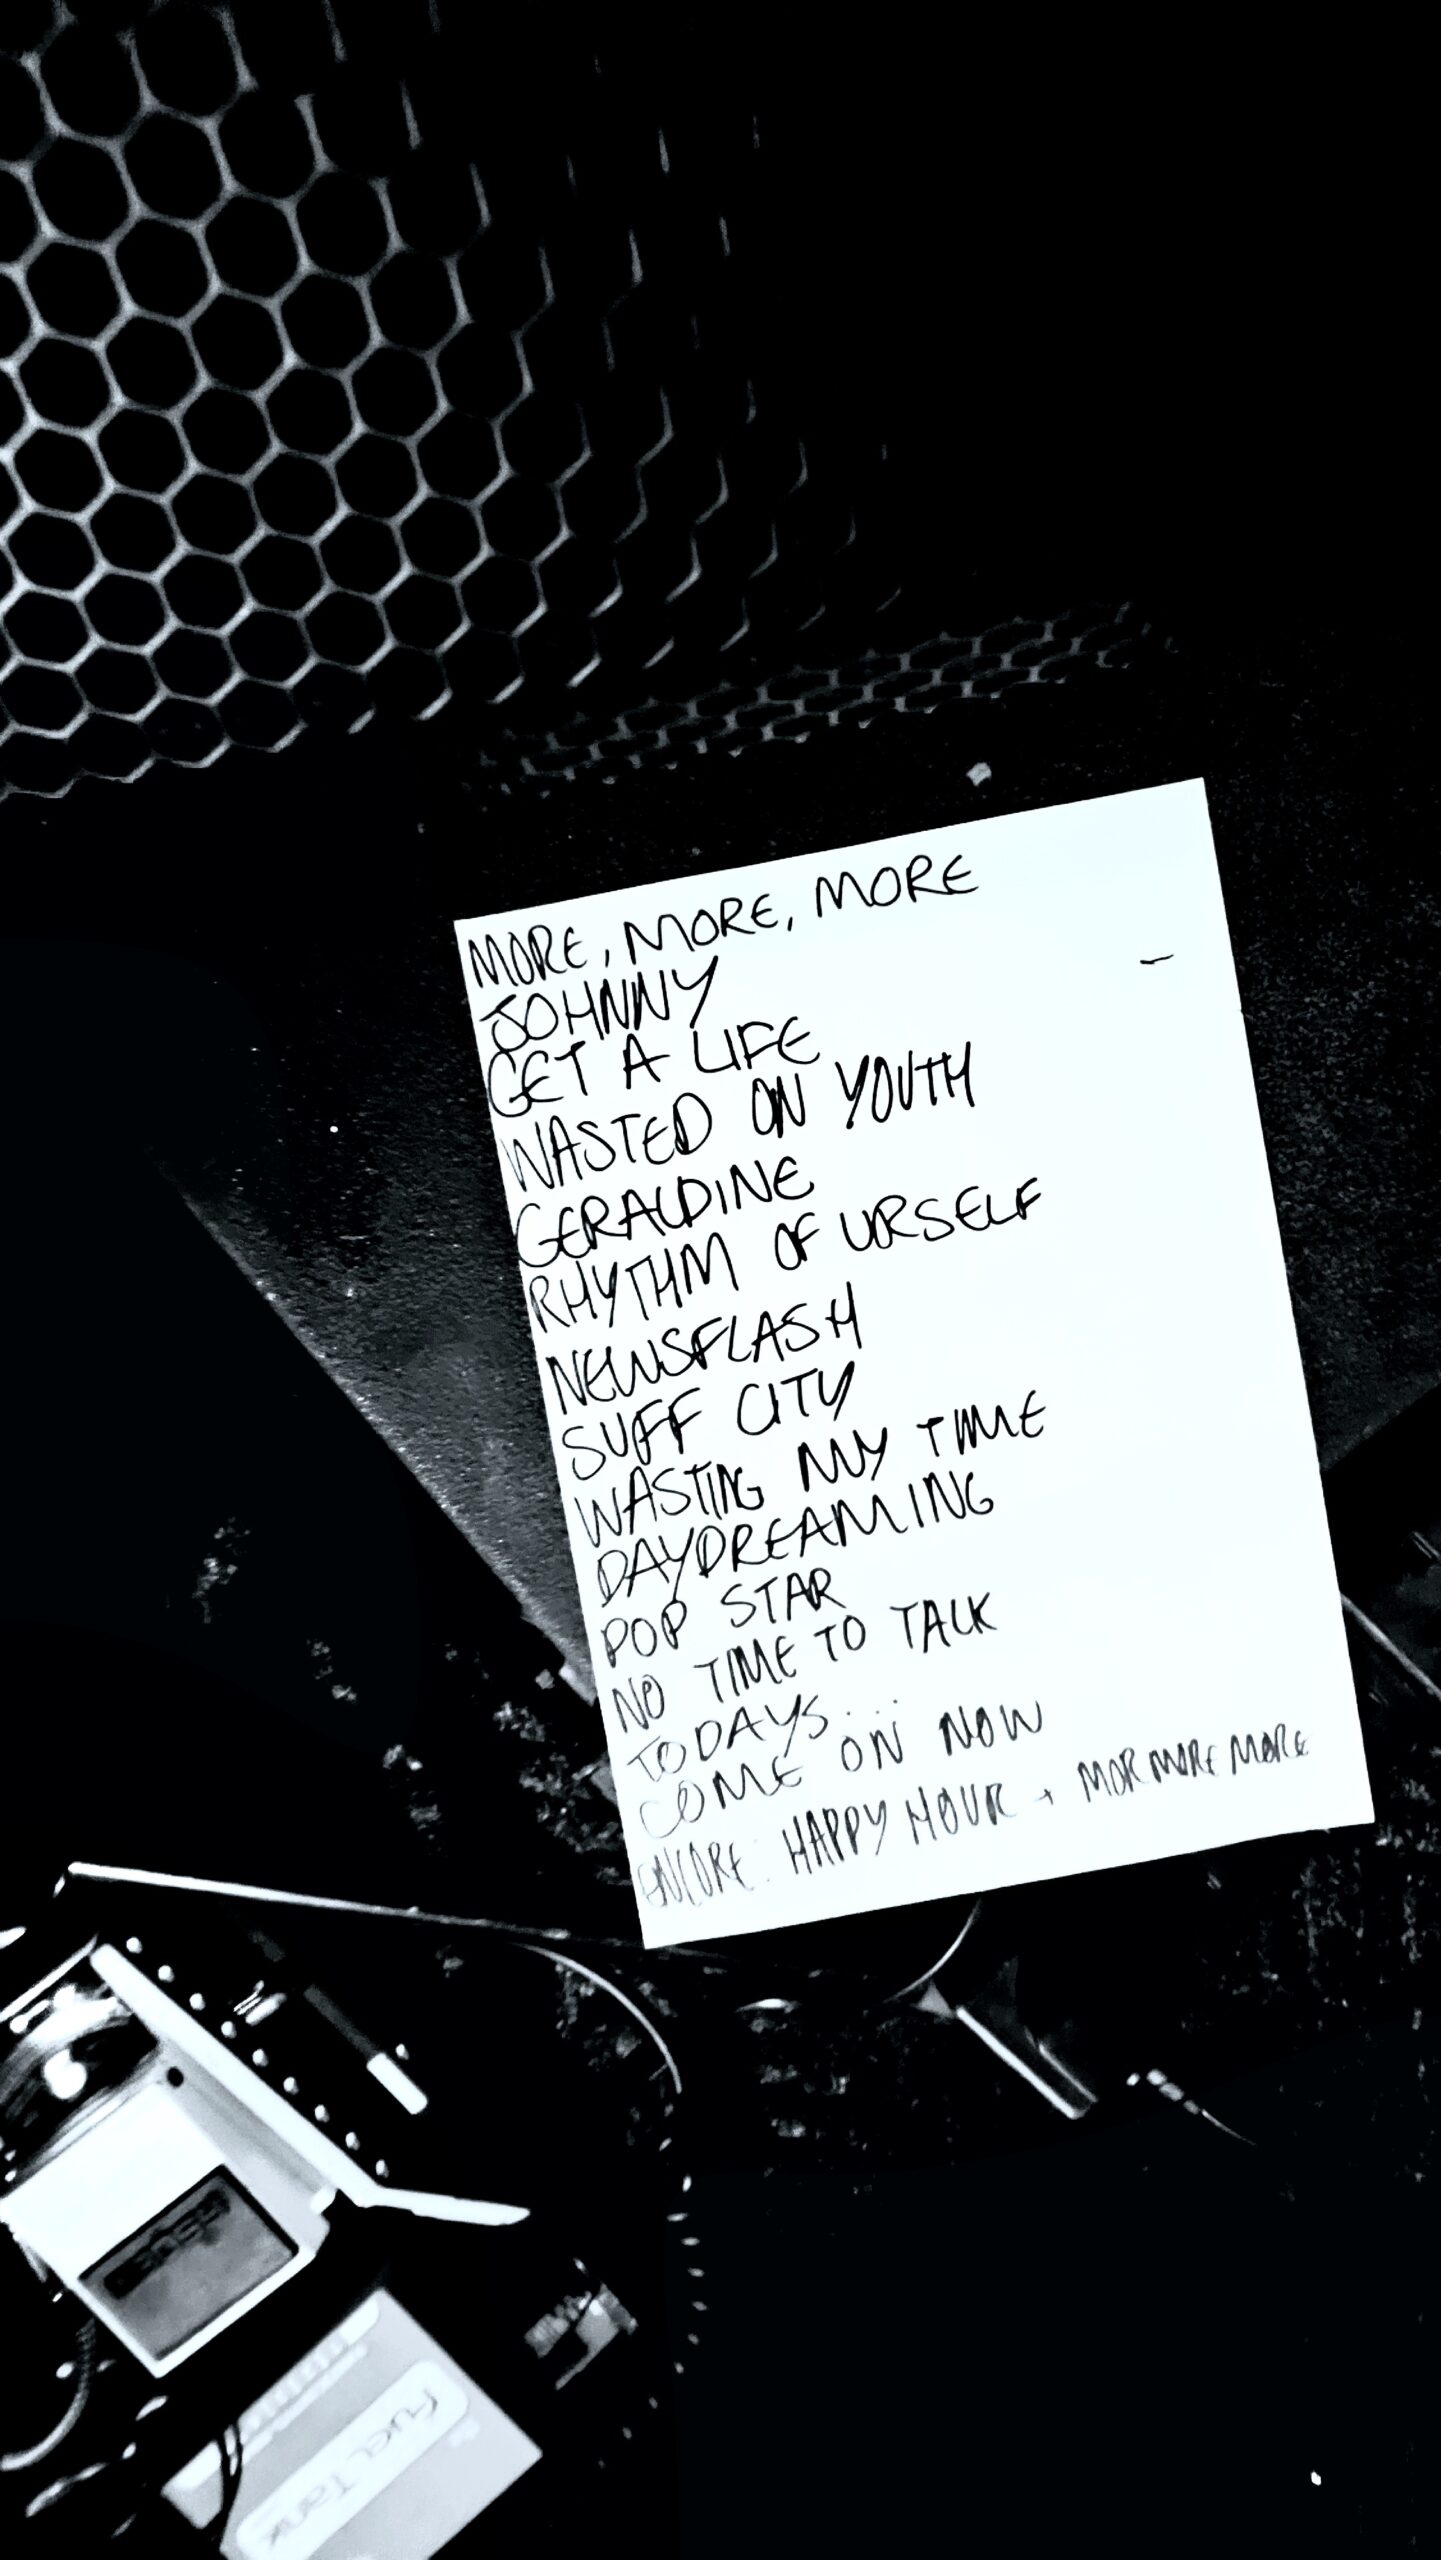 MORE, MORE, MORE
JOHNNY
GET A LIFE
WASTED ON YOUTH
GERALDINE
RHYTHM OF URSELF
NEWSFLASH
SUFF CITY
WASTING MY TIME
DAYDREAMING
POP STAR
NO TIME TO TALK
TODAYS...
COME ON NOW
ENCORE: HAPPY HOUR + MOR MORE MORE
FUEL TANK